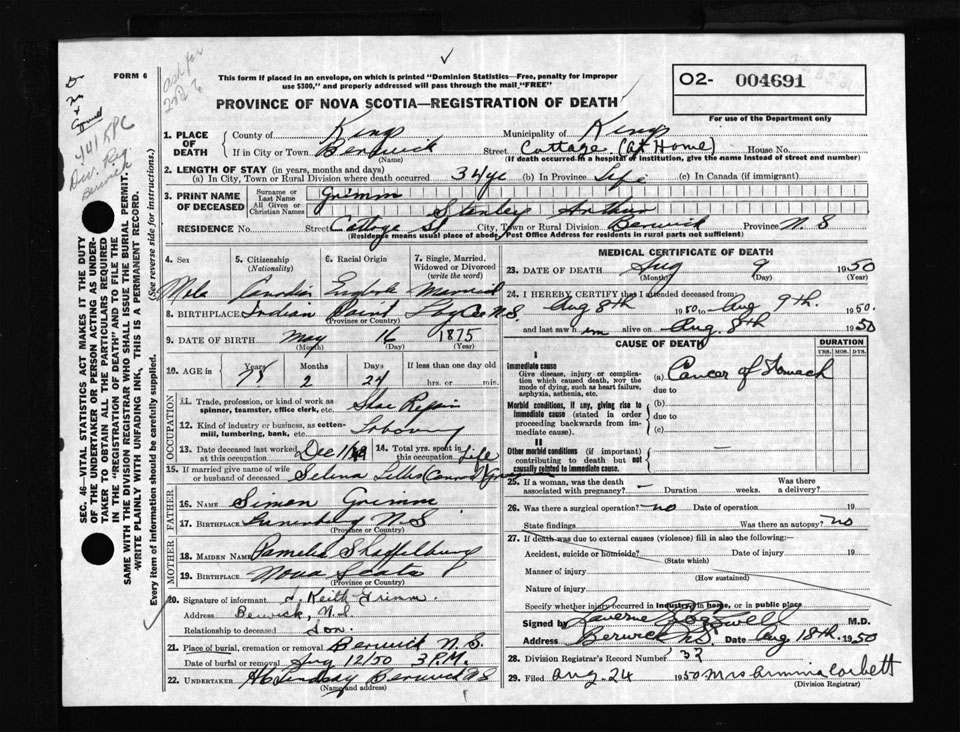 FORM 6
ask for
This form if placed in an envelope, on which is printed "Dominion Statistics—Free, penalty for improper
use $300," and properly addressed will pass through the mail, "FREE"
PROVINCE OF NOVA SCOTIA—REGISTRATION OF DEATH
02- 004691
For use of the Department only
Div. Reg.
Berwick
SEC. 46—VITAL STATISTICS ACT MAKES IT THE DUTY
OF THE UNDERTAKER OR PERSON ACTING AS UNDER-
TAKER TO OBTAIN ALL THE PARTICULARS REQUIRED
IN THE "REGISTRATION OF DEATH" AND TO FILE THE
SAME WITH THE DIVISION REGISTRAR WHO SHALL ISSUE THE BURIAL PERMIT.
WRITE PLAINLY WITH UNFADING INK, THIS IS A PERMANENT RECORD.
Every item of information should be carefully supplied. (See reverse side for instructions.)
1. PLACE OF DEATH County of Kings Municipality of Kings
If in City or Town Berwick Street Cottage (at Home) House No.
(Name) (If death occurred in a hospital or institution, give the name instead of street and number)
2. LENGTH OF STAY (in years, months and days)
(a) In City, Town or Rural Division where death occurred 34 yr (b) In Province Life (c) In Canada (if immigrant)
3. PRINT NAME OF DECEASED Surname or Last Name Grimm
All Given or Christian Names Stanley Arthur
RESIDENCE No. Street Cottage St City, Town or Rural Division Berwick Province N.S
(Residence means usual place of abode, Post Office Address for residents in rural parts not sufficient)
4. Sex 5. Citizenship (Nationality) 6. Racial Origin 7. Single, Married, Widowed or Divorced (write the word)
Male Canadian Married
8. BIRTHPLACE Indian Point N.S.
(Province or Country)
9. DATE OF BIRTH May 16 1875
(Month) (Day) (Year)
10. AGE in Years Months Days If less than one day
75 2 24 hrs. or min.
OCCUPATION
11. Trade, profession, or kind of work as spinner, teamster, office clerk, etc. Shoe Repair
12. Kind of industry or business, as cotton-mill, lumbering, bank, etc.
13. Date deceased last worked at this occupation Dec 14. Total yrs. spent in this occupation Life
15. If married give name of wife or husband of deceased Selena
FATHER
16. NAME Simon Grimm
17. BIRTHPLACE Lunenburg N.S
(Province or Country)
MOTHER
18. MAIDEN NAME Pamelia
19. BIRTHPLACE Nova Scotia
(Province or Country)
20. Signature of informant Keith Grimm.
Address Berwick, N.S
Relationship to deceased Son.
21. Place of burial, cremation or removal Berwick N.S.
Date of burial or removal Aug 12/50 3 P.M.
22. UNDERTAKER H C Lindsay Berwick NS
(Name and address)
MEDICAL CERTIFICATE OF DEATH
23. DATE OF DEATH Aug 9 1950
(Month) (Day) (Year)
24. I HEREBY CERTIFY that I attended deceased from:
Aug 8th 1950 to Aug 9th. 1950.
and last saw him alive on Aug. 8th 1950
CAUSE OF DEATH DURATION
YRS. MOS. DYS.
I
Immediate cause
Give disease, injury or complication which caused death, not the mode of dying, such as heart failure, asphyxia, asthenia, etc.
(a) Cancer of Stomach
due to
Morbid conditions, if any, giving rise to immediate cause (stated in order proceeding backwards from immediate cause).
(b)
due to
(c)
II
Other morbid conditions (if important) contributing to death but not causally related to immediate cause.
25. If a woman, was the death associated with pregnancy? — Duration weeks. Was there a delivery?
26. Was there a surgical operation? no Date of operation 19
State findings Was there an autopsy? no
27. If death was due to external causes (violence) fill in also the following:—
Accident, suicide or homicide? Date of injury 19
(State which)
Manner of injury
(How sustained)
Nature of injury
Specify whether injury occurred in industry, in home, or in public place
Signed by M.D.
Address Berwick N.S. Date Aug 18th. 1950
28. Division Registrar's Record Number 37
29. Filed Aug. 24 1950 Mrs Arminia Corbett
(Division Registrar)